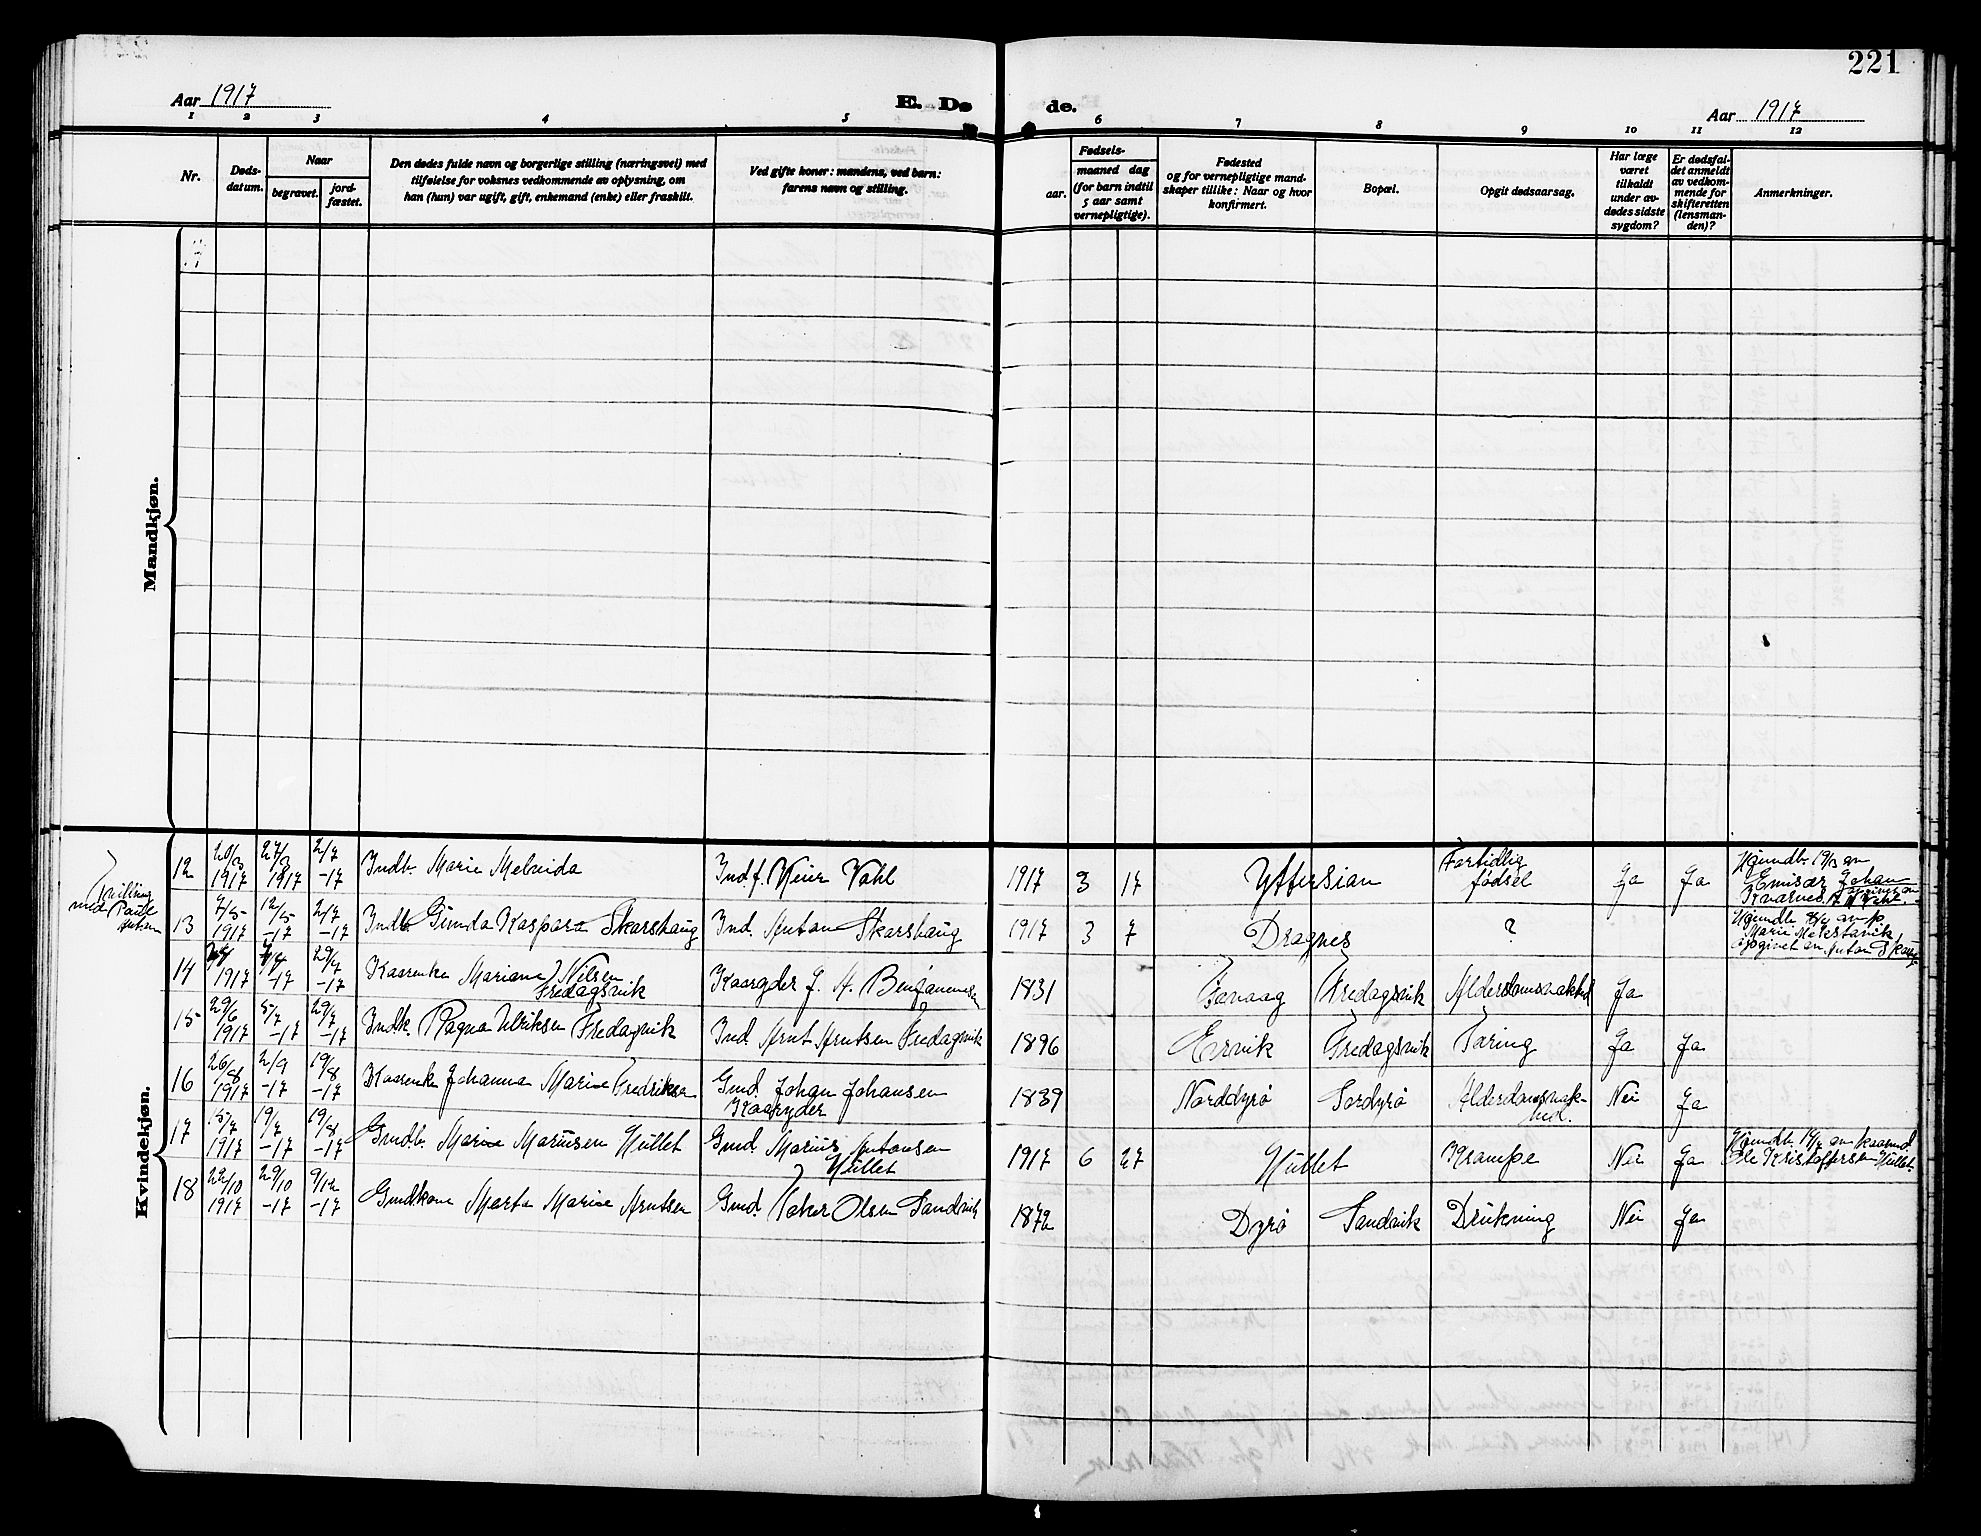 221
Aar 1917
E. Dø
de.
Aar 1917
1 2 3 4 5 6 7 8 9 10 11 12
Nr.
Døds-
datum.
Naar
begravet.
jord-
fæstet.
Den dødes fulde navn og borgerlige stilling (næringsvei) med
tilføielse for voksnes vedkommende av oplysning, om
han (hun) var ugift, gift, enkemand (enke) eller fraskilt.
Ved gifte koner: mandens, ved barn:
farens navn og stilling.
Fødsels-
aar.
maaned dag
(for barn indtil
5 aar samt
vernepligtige).
Fødested
og for vernepligtige mand-
skaper tillike: Naar og hvor
konfirmert.
Bopæl.
Opgit dødsaarsag.
Har læge
været
tilkaldt
under av-
dødes sidste
sygdom?
Er dødsfal-
det anmeldt
av vedkom-
mende for
skifteretten
(lensman-
den)?
Anmerkninger.
Mandkjøn.
Kvindekjøn.
Tvilling
med Paul
12 20/3 1917 27/3 1917 2/7 -17 Indb. Marie Melvida Indf. Vahl 1917 3 17 Yttersian Fortidlig fødsel Ja Ja Hjemdb. 19/3 av Emisær Johan
13 7/5 1917 12/5 -17 2/7 -17 Indb Gunda Kaspara Skarshaug Ind. Anton Skarshaug 1917 3 7 Dragnes ? Hjemdb. av Marie opgivet av Anton
14 1917 -17 29/7 -17 Kaarenke Mariane Nilsen Fredagsvik Kaargder J. A. Benjaminsen 1831 Fredagsvik Alderdomsvakhed Ja
15 29/6 1917 5/7 -17 29/7 -17 Indk. Ragna Ulriksen Fredagsvik Ind Arnt Arntsen Fredagsvik 1896 Ervik Fredagsvik Tæring Ja Ja
16 26/8 1917 2/9 -17 19/8 -17 Kaarenk Johanna Marie Fredriksen Gmd. Johan Johansen Kaargder 1839 Norddyrø Sørdyrø Alderdomsvak- hed. Nei Ja
17 15/7 1917 19/7 -17 19/8 -17 Gmdb. Marie Mariusen Hullet Gmd. Marius Antonsen Hullet 1917 6 27 Hullet Krampe Nei Ja Hjemdb. av kaarmd Ole Kristoffersen Hullet.
18 22/10 1917 29/10 -17 9/12 -17 Gmdkone Marta Marie Arntsen Gmd. Olsen Sandvik 1872 Dyrø Sandvik Drukning Nei Ja